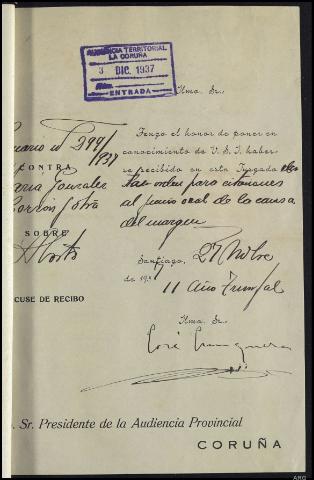 AUDIENCIA TERRITORIAL
LA CORUÑA
3 DIC. 1937
ENTRADA
Ilmo. Sr.
Tengo el honor de poner en
conocimiento de V.S.I. haber
se recibido en este Juzgado
para citaciones
al juicio oral de la causa
del margen
Santiago, 27 Nvbre
de 193
II Año Triunfal
Ilmo. Sr.
José
299/
1937
CONTRA
Gonzalez
SOBRE
CUSE DE RECIBO
. Sr. Presidente de la Audiencia Provincial
CORUÑA
ARG